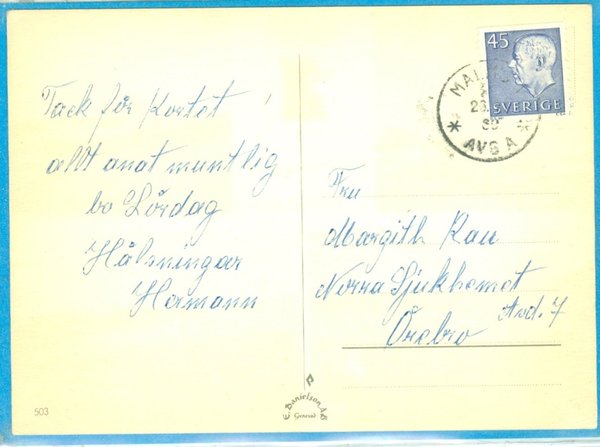 Tack för Kortet
allt anat muntlig
bo Lördag
Hälsningar
Hermann
45
SVERIGE
MAL
AVG A
Fru
Margith Rau
Norra Sjukhemet
Avd. 7
Örebro
E. Danielson AB
503